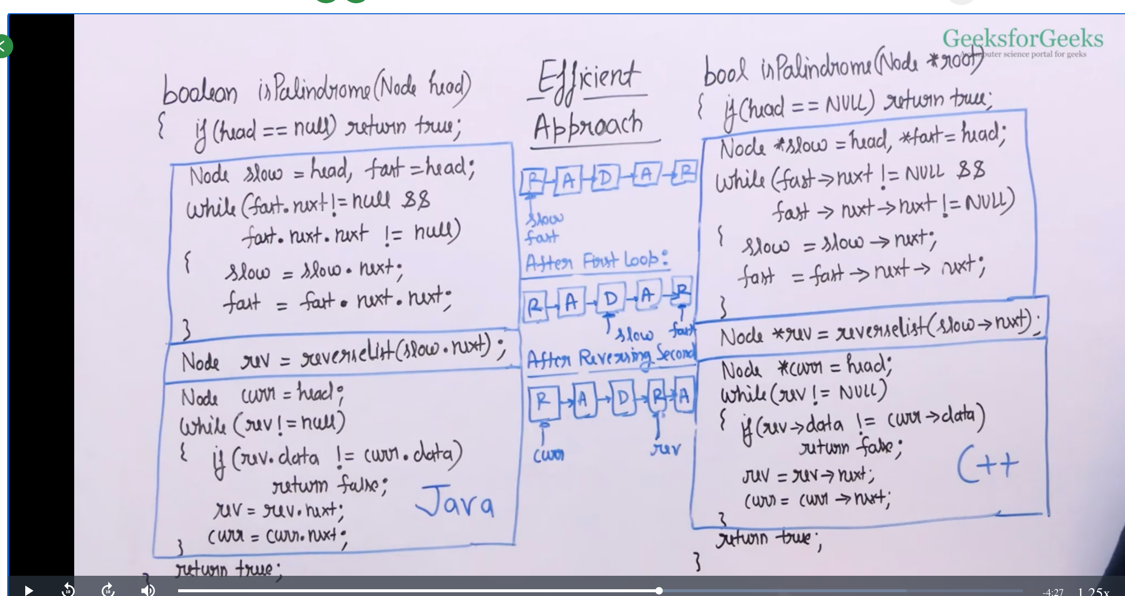 GeeksforGeeks
computer science portal for geeks
boolean isPalindrome(Node head)
{ if (head == null) return true;
Node slow = head, fast = head;
while (fast.next != null &&
fast.next.next != null)
{
slow = slow.next;
fast = fast.next.next;
}
Node rev = reverselist(slow.next);
Node curr = head;
while (rev != null)
{ if (rev.data != curr.data)
return false;
rev = rev.next;
curr = curr.next;
}
return true;
Java
Efficient
Approach
R A D A R
slow
fast
After First Loop:
R A D A R
slow fast
After Reversing Second
R A D R A
curr rev
bool isPalindrome(Node *root)
{ if (head == NULL) return true;
Node *slow = head, *fast = head;
while (fast→next != NULL &&
fast→next→next != NULL)
{
slow = slow→next;
fast = fast→next→next;
}
Node *rev = reverselist(slow→next);
Node *curr = head;
while (rev != NULL)
{ if (rev→data != curr→data)
return false;
rev = rev→next;
curr = curr→next;
}
return true;
}
C++
-4:27 1.25x